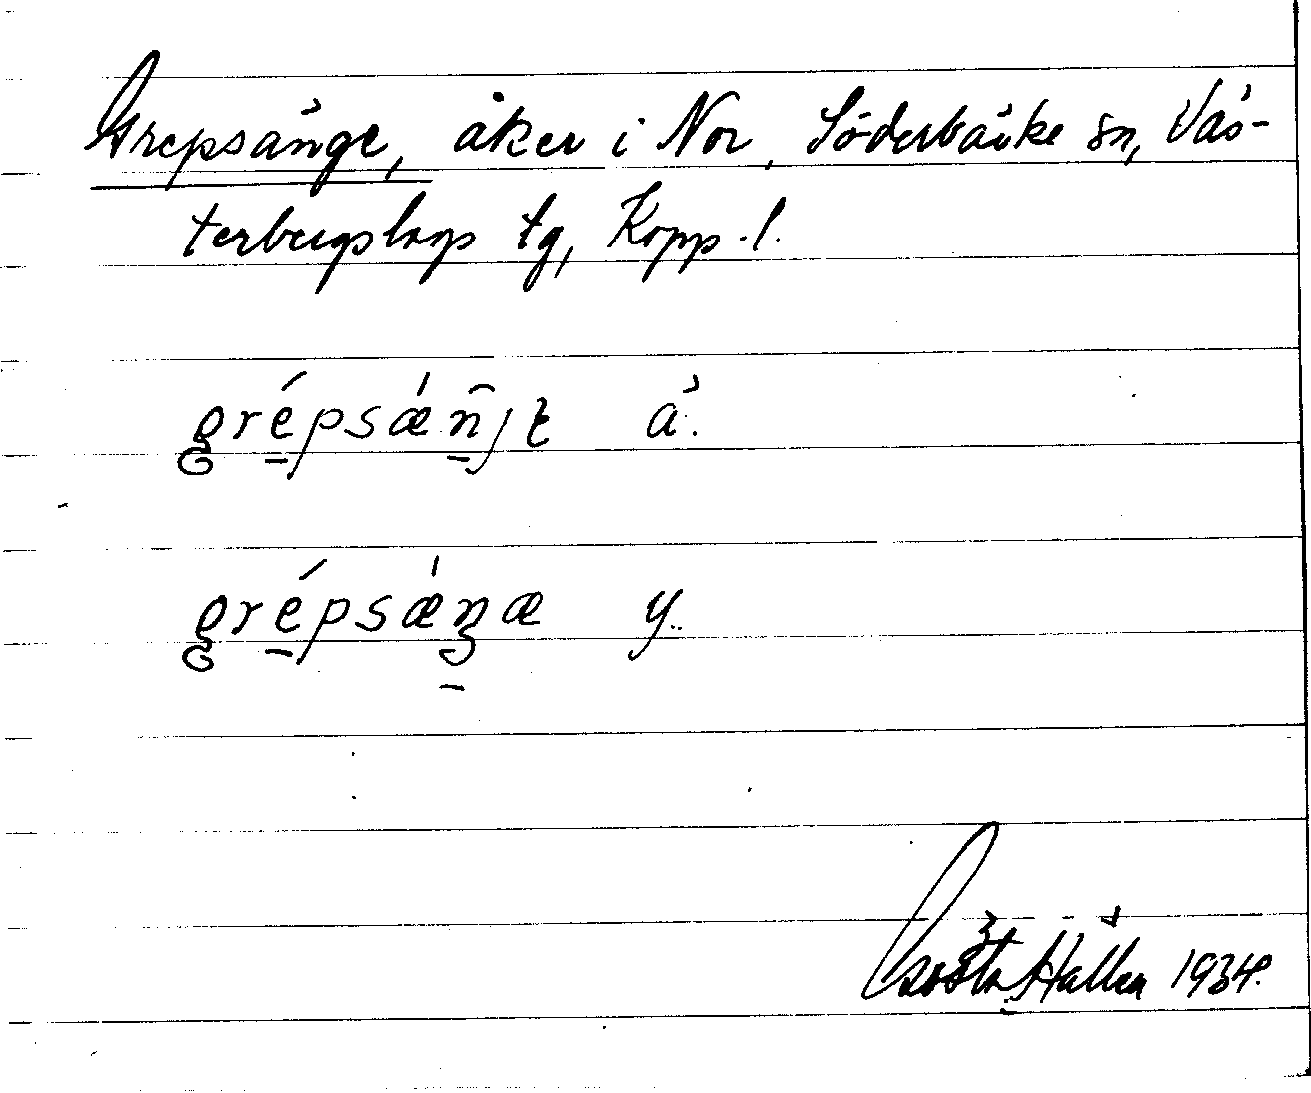 Grepsänge, åker i Nor, Söderbärke sn, Väs-
terbergslags tg, Kopp. l.
grépsǽn̂jɛ ä.
grépsǽŋæ y.
Gösta Hallen 1934.